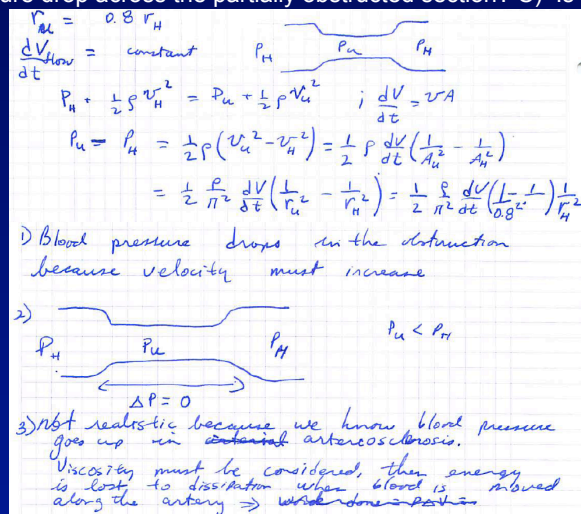 ure drop across the partially obstructed section? 3) Is
r_u = 0.8 r_H
dV_flow/dt = constant
P_H P_u P_H
P_H + 1/2 ρ v_H² = P_u + 1/2 ρ v_u² ; dV/dt = vA
P_u = P_H = 1/2 ρ (v_u² - v_H²) = 1/2 ρ dV/dt (1/A_u² - 1/A_H²)
= 1/2 ρ/π² dV/dt (1/r_u² - 1/r_H²) = 1/2 ρ/π² dV/dt (1/0.8² - 1) 1/r_H²
1) Blood pressure drops in the obstruction
because velocity must increase
2)
P_H P_u P_H P_u < P_H
ΔP = 0
3) not realistic because we know blood pressure
goes up in arterial artereosclerosis.
Viscosity must be considered, then energy
is lost to dissipation when blood is moved
along the artery ⇒ work done = PΔV =